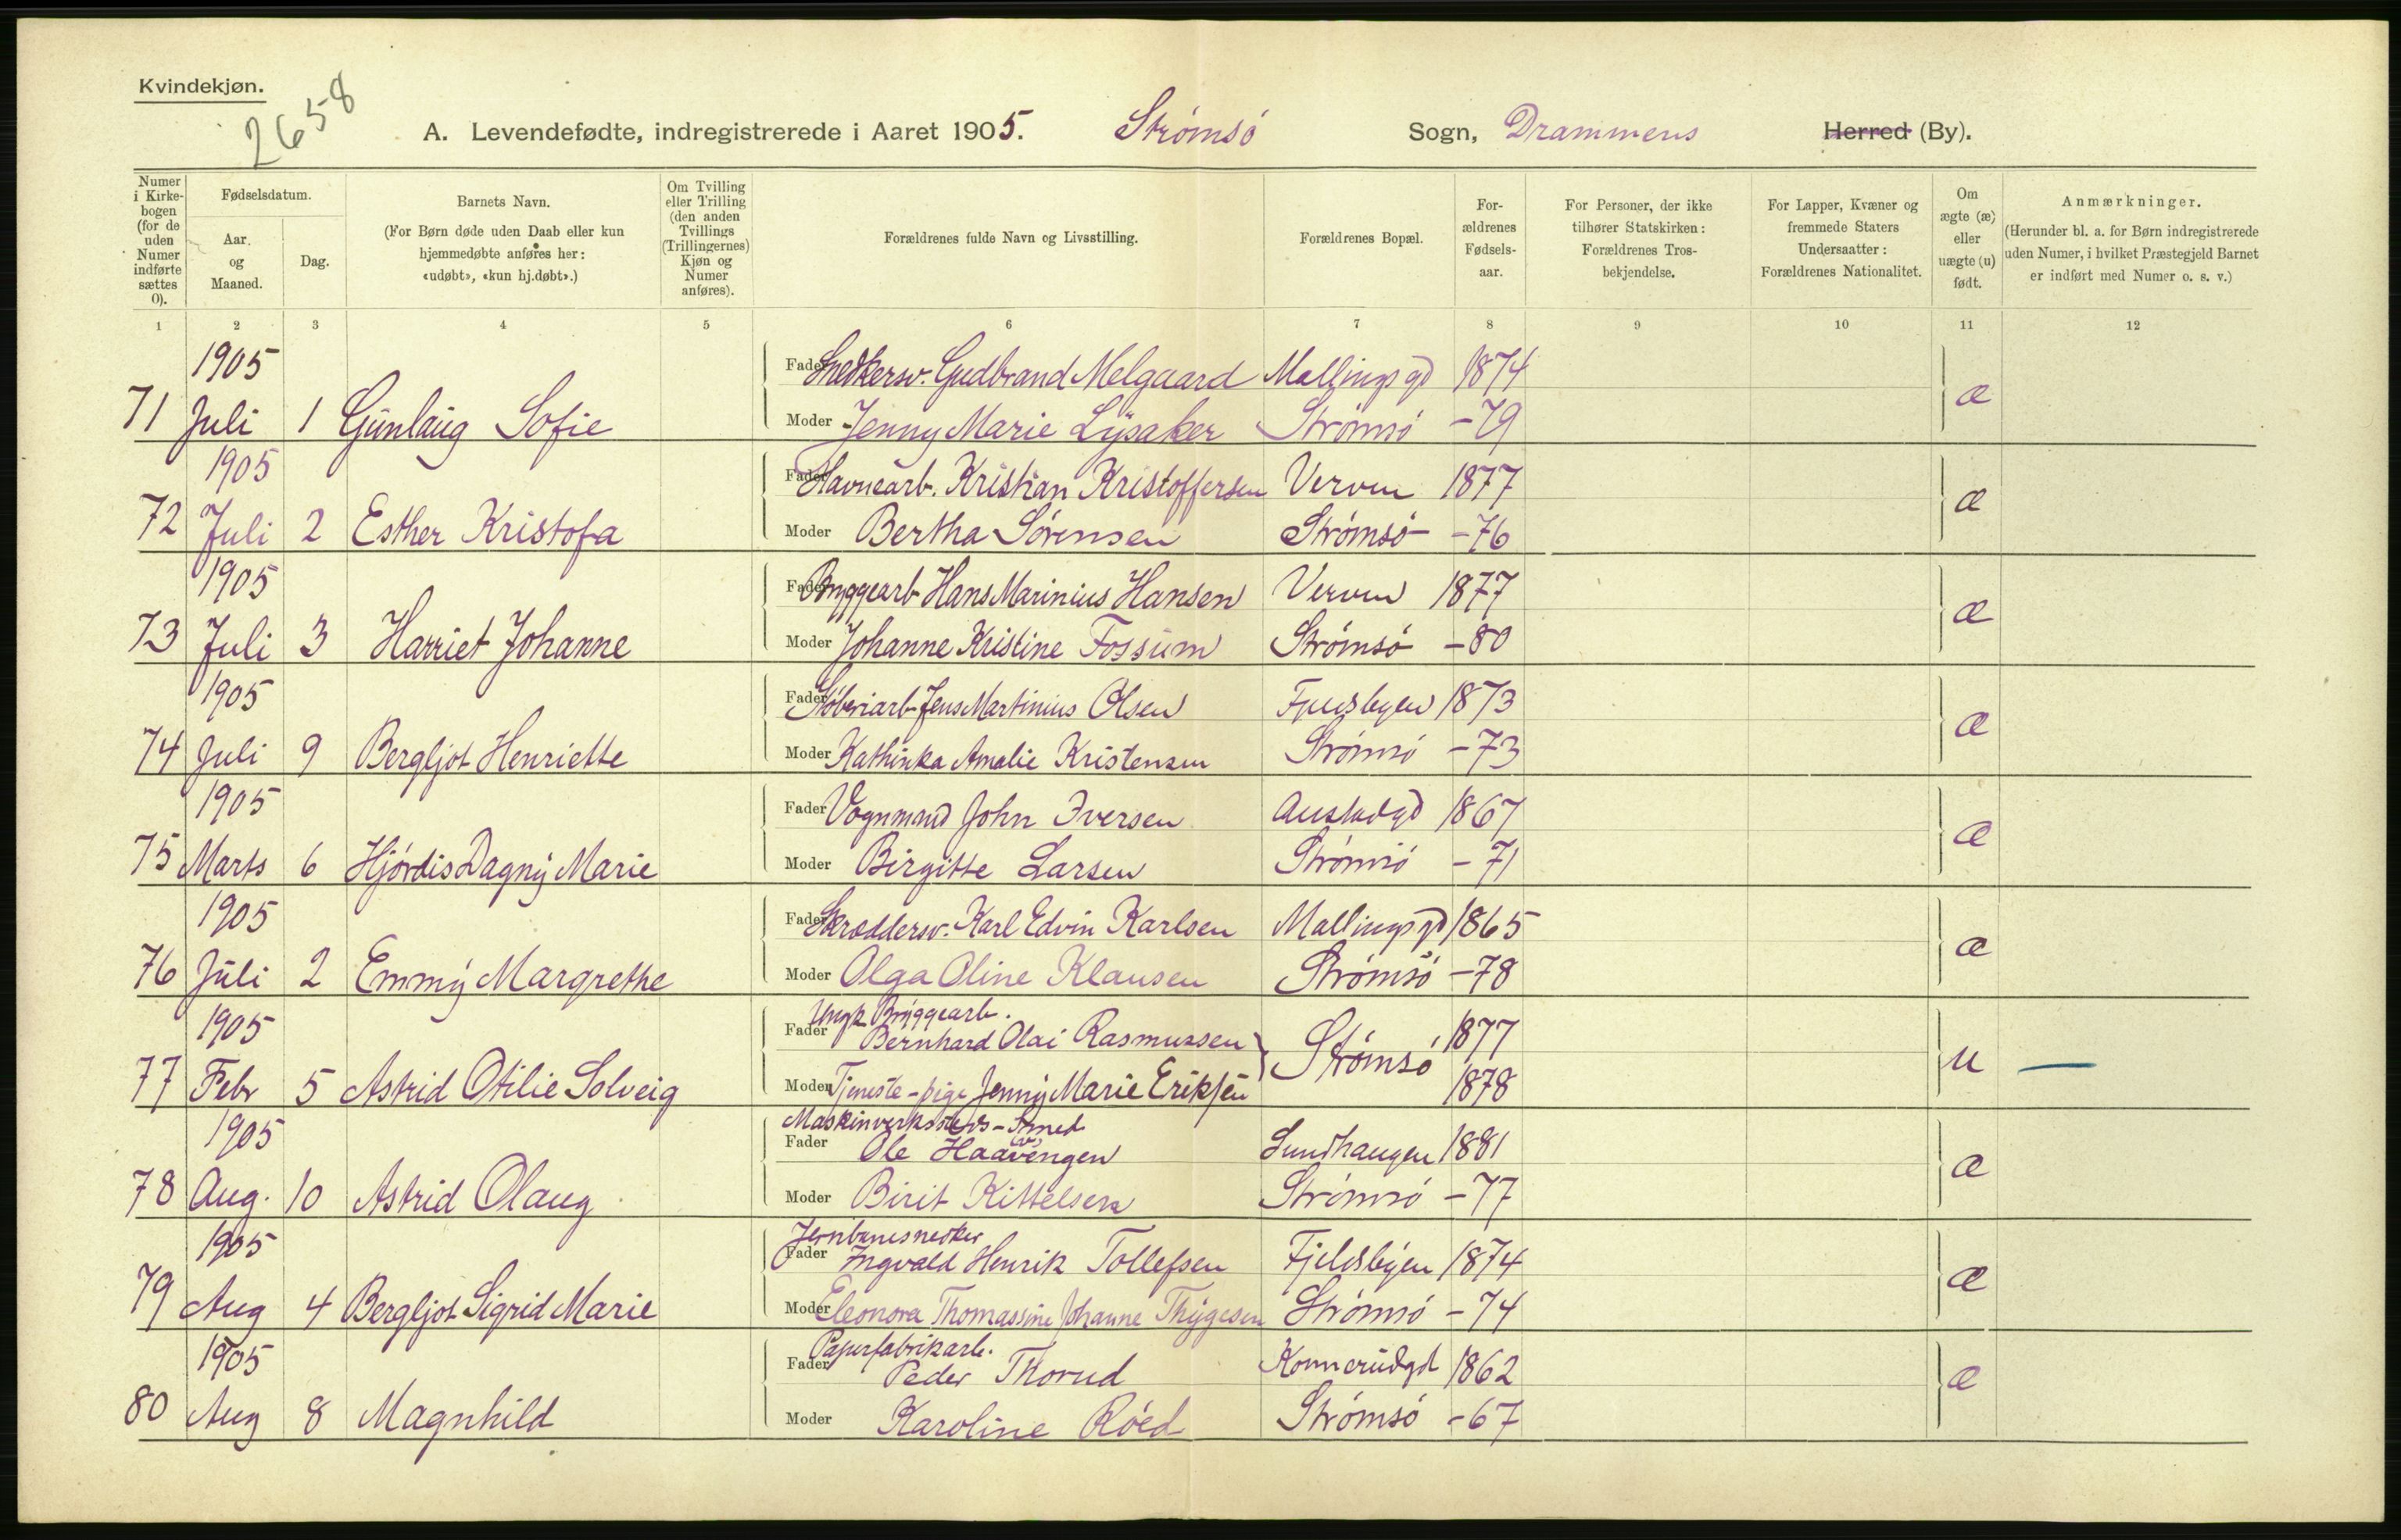 Kvindekjøn.
2658
A. Levendefødte, indregistrerede i Aaret 1905. Strømsö Sogn, Drammens Herred (By).
Numer i Kirkebogen (for de uden Numer indførte sættes 0).
Fødselsdatum.
Aar og Maaned.
Dag.
Barnets Navn.
(For Børn døde uden Daab eller kun hjemmedøbte anføres her: «udøbt», «kun hj.døbt».)
Om Tvilling eller Trilling (den anden Tvillings (Trillingernes) Kjøn og Numer anføres).
Forældrenes fulde Navn og Livsstilling.
Forældrenes Bopæl.
Forældrenes Fødselsaar.
For Personer, der ikke tilhører Statskirken: Forældrenes Trosbekjendelse.
For Lapper, Kvæner og fremmede Staters Undersaatter: Forældrenes Nationalitet.
Om ægte (æ) eller uægte (u) født.
Anmærkninger.
(Herunder bl. a. for Børn indregistrerede uden Numer, i hvilket Præstegjeld Barnet er indført med Numer o. s. v.)
1 2 3 4 5 6 7 8 9 10 11 12
1905 Fader Snedkersv. Gudbrand Melgaard Mallingsgd 1874 æ
71 Juli 1 Gunlaug Sofie Moder Jenny Marie Lysaker Strømsö -79
1905 Fader Havnearb. Kristian Kristoffersen Verven 1877 æ
72 Juli 2 Esther Kristofa Moder Bertha Sörensen Strömsö -76
1905 Fader Bryggearb Hans Marinius Hansen Verven 1877 æ
73 Juli 3 Harriet Johanne Moder Johanne Kristine Fossum Strömsö -80
1905 Fader Støberiarb Jens Martinius Olsen Fjeldsbyen 1873 æ
74 Juli 9 Bergljot Henriette Moder Kathinka Amalie Kristensen Strömsö -73
1905 Fader Vognmand John Iversen Austadgd 1867 æ
75 Marts 6 Hjördis Dagny Marie Moder Birgitte Larsen Strömsö -71
1905 Fader Skræddersv. Karl Edvin Karlsen Mallingsgd 1865 æ
76 Juli 2 Emmy Margrethe Moder Olga Oline Klausen Strömsö -78
1905 Ungk. Bryggearb.
Fader Bernhard Olai Rasmussen Strömsö 1877 u —
77 Febr 5 Astrid Otilie Solveig Moder Tjeneste-pige Jenny Marie Eriksen 1878
1905 Maskinverksteds-Smed
Fader Ole Haavengen (v) Sundhaugen 1881 æ
78 Aug. 10 Astrid Olaug Moder Birit Kittelsen Strömsö -77
1905 Jernbanesnedker
Fader Ingvald Henrik Tollefsen Fjeldsbyen 1874 æ
79 Aug 4 Bergljot Sigrid Marie Moder Eleonora Thomassine Johanne Thygesen Strömsö -74
1905 Papirfabrikarb.
Fader Peder Thorud Konnerudgd 1862 æ
80 Aug 8 Magnhild Moder Karoline Röed Strömsö -67